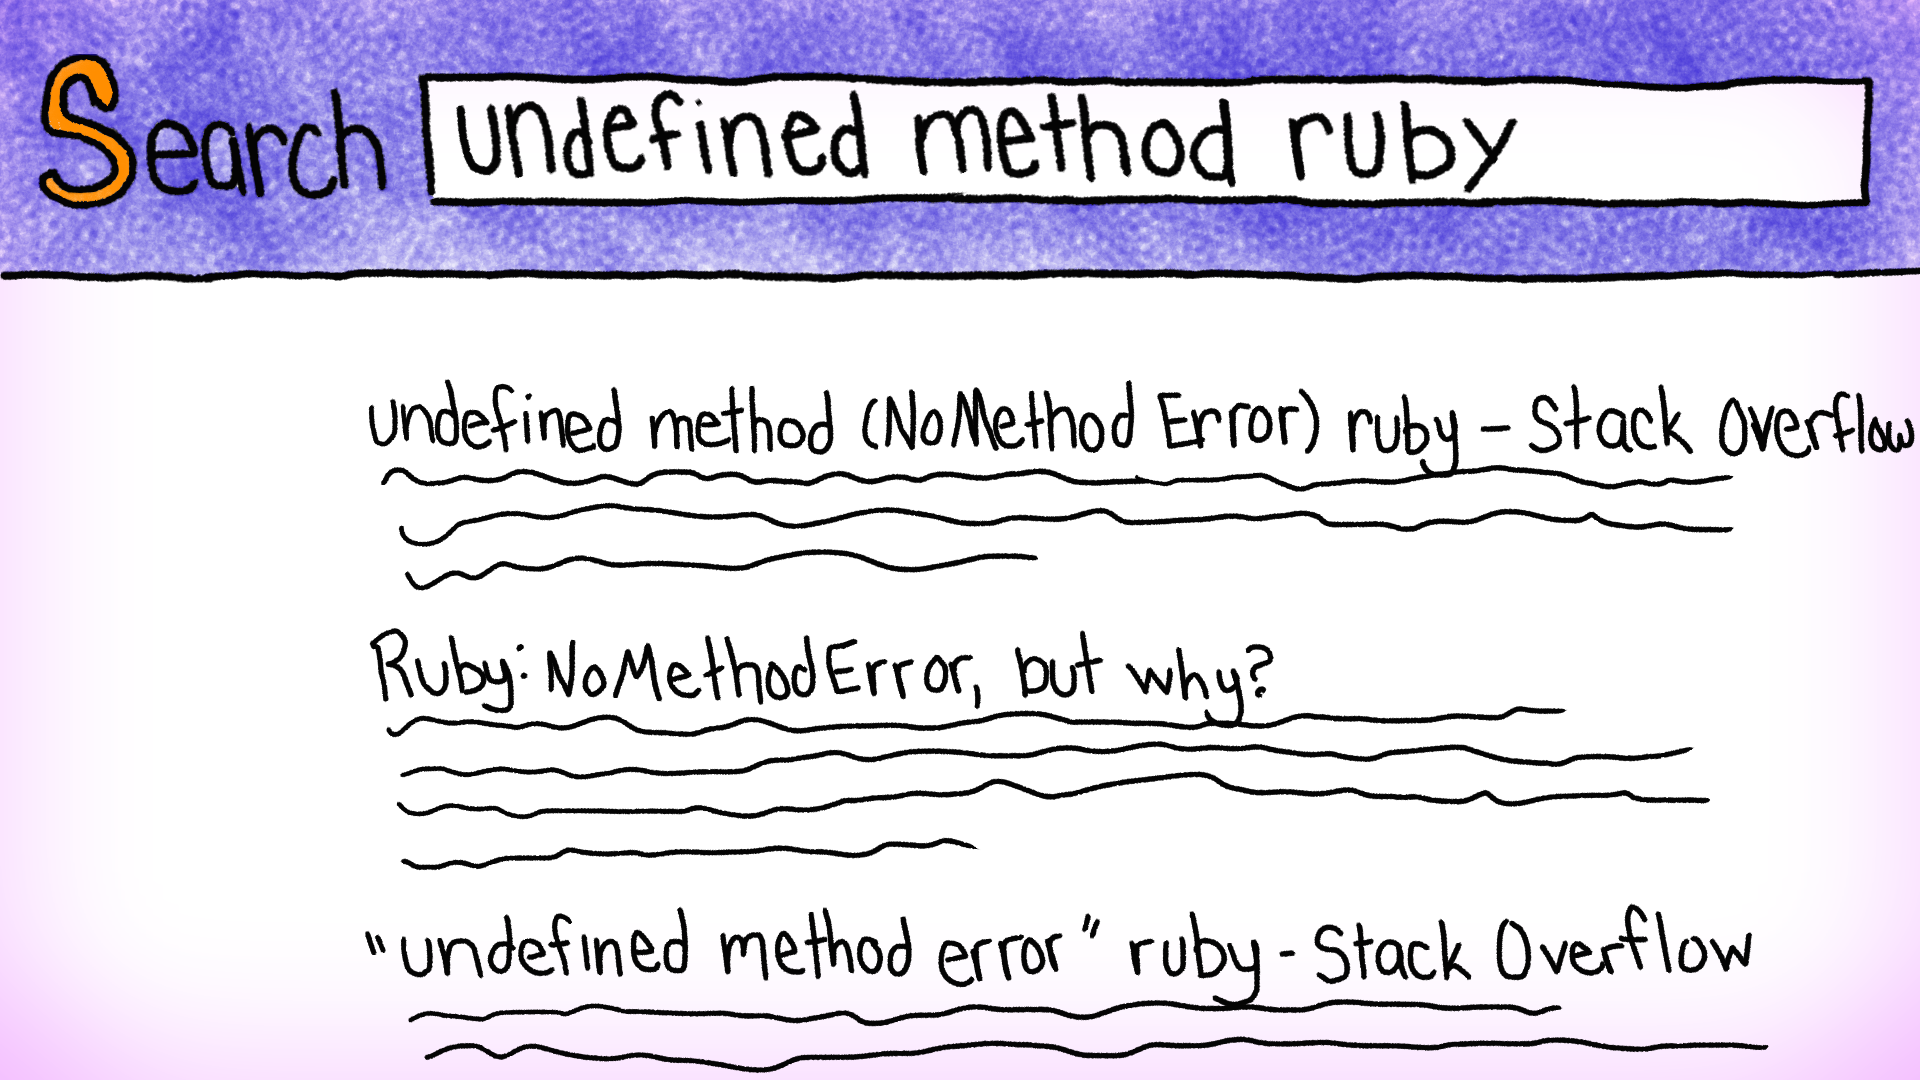 Search undefined method ruby
undefined method (NoMethod Error) ruby - Stack Overflow
Ruby: NoMethodError, but why?
"undefined method error" ruby - Stack Overflow